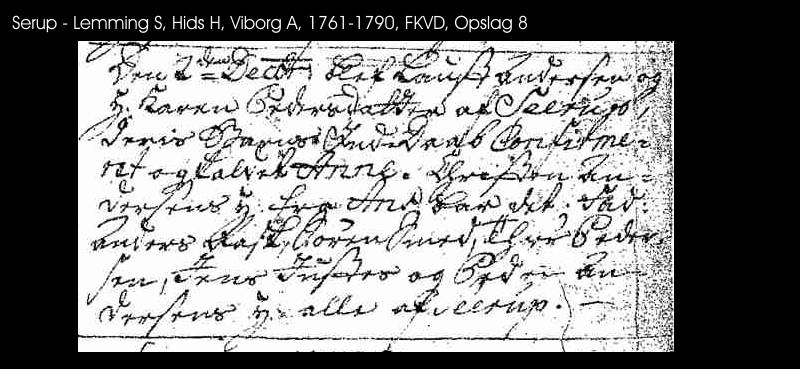 Serup - Lemming S, Hids H, Viborg A, 1761-1790, FKVD, Opslag 8
Den 2den Decbr blef Laust Andersen og
H. Karen Pedersdatter af Seerup,
Deris Barns Daab Confirme-
ret og kaldet Anne. Christen An-
dersens H. fra bar det. Fad:
Anders Rask, Sören Smed, Peder-
sen, Jens og Peder An-
dersens H. alle af Seerup.